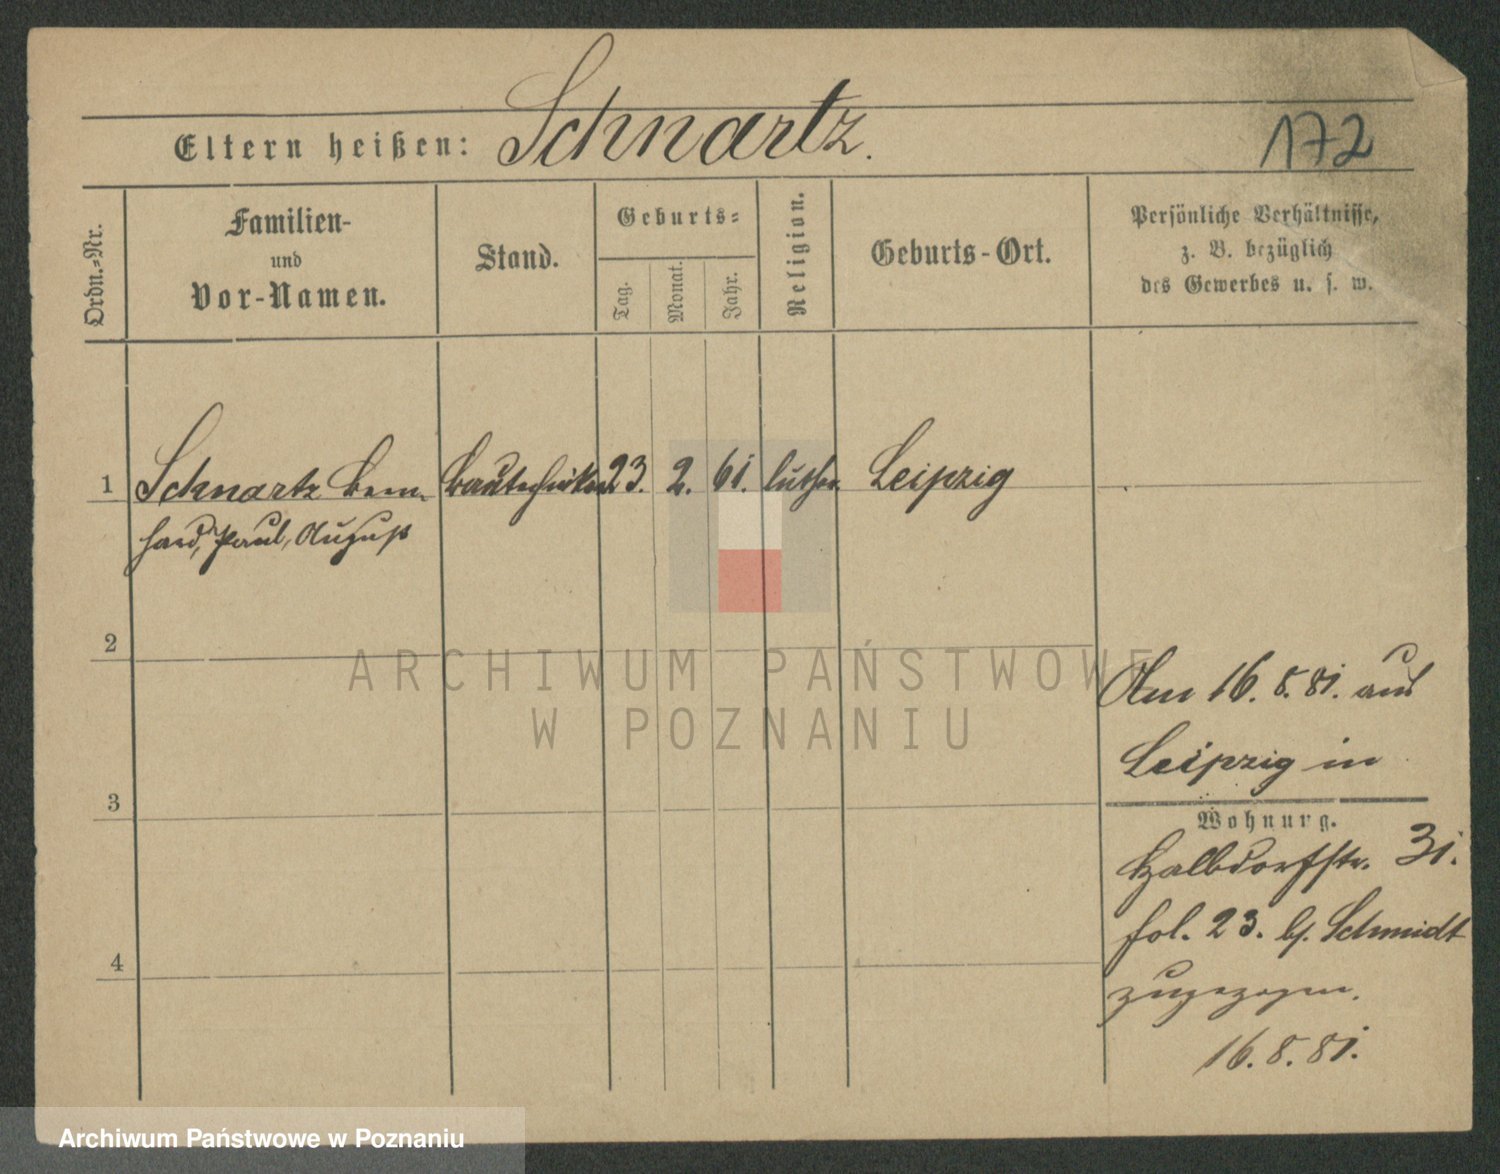 Eltern heißen: Schnartz.
172
Ordn.-Nr.
Familien-
und
Vor-Namen.
Stand.
Geburts-
Tag.
Monat.
Jahr.
Religion.
Geburts-Ort.
Persönliche Verhältnisse,
z. B. bezüglich
des Gewerbes u. s. w.
1 Schnartz Bern- Bautechniker 23. 2. 61. luther. Leipzig
hard, Paul, August
2
ARCHIWUM PAŃSTWOWE
W POZNANIU
Am 16. 8. 81. aus
Leipzig in
3
Wohnung.
Halbdorfstr. 31.
fol. 23. bj. Schmidt
4
zugezogen.
16. 8. 81.
Archiwum Państwowe w Poznaniu